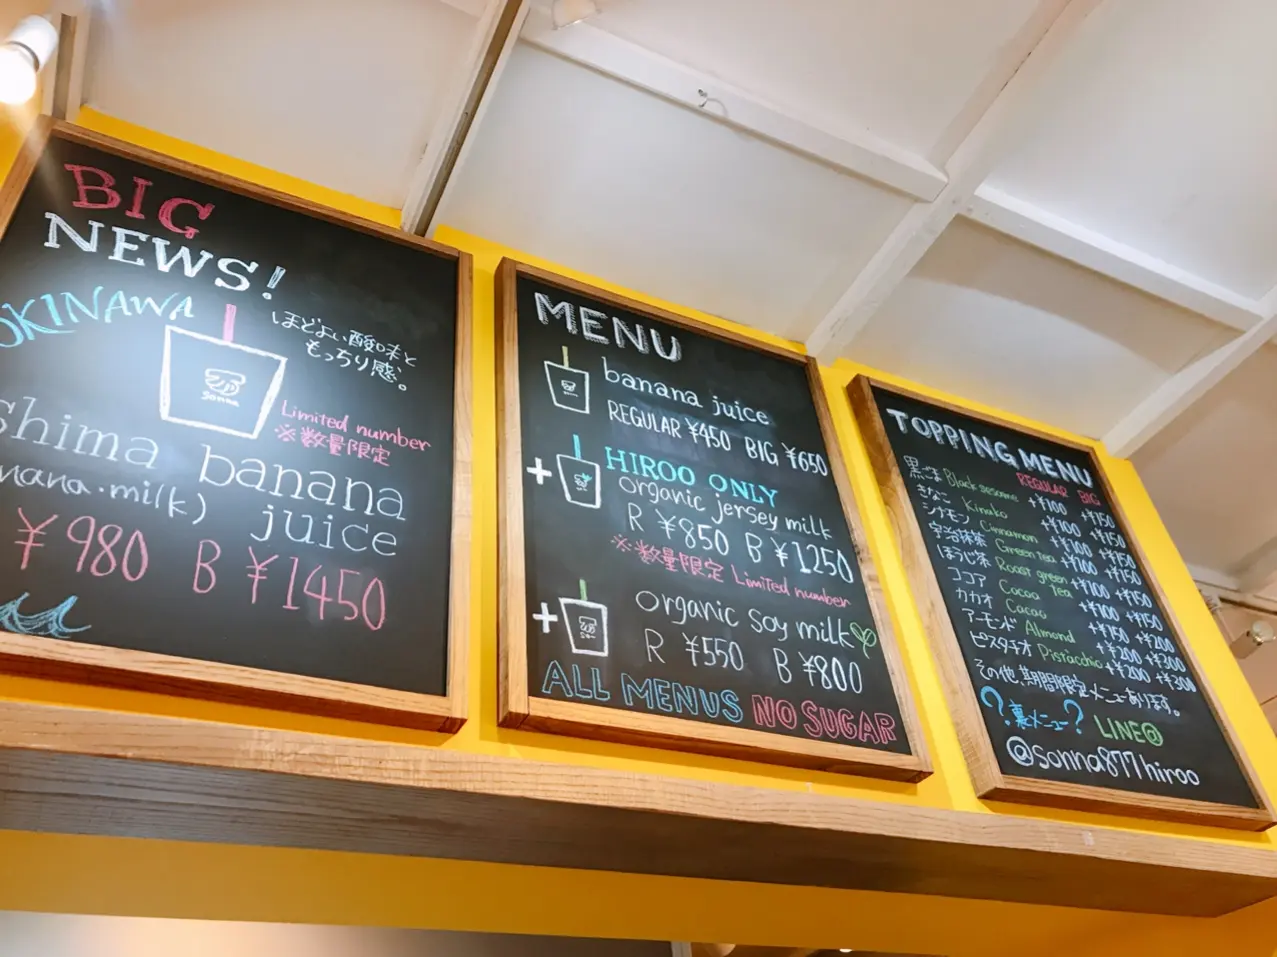 BIG
NEWS!
OKINAWA
ほどよい酸味と
もっちり感。
sonna
Limited number
※数量限定
shima banana
nana・milk) juice
¥980 B ¥1450
MENU
banana juice
REGULAR ¥450 BIG ¥650
+ HIROO ONLY
organic jersey milk
R ¥850 B ¥1250
※数量限定 Limited number
+ organic soy milk
R ¥550 B ¥800
ALL MENUS NO SUGAR
TOPPING MENU
REGULAR BIG
黒ごま Black sesame +¥100 +¥150
きなこ Kinako +¥100 +¥150
シナモン Cinnamon +¥100 +¥150
宇治抹茶 Green tea +¥100 +¥150
ほうじ茶 Roast green Tea +¥100 +¥150
ココア Cocoa +¥100 +¥150
カカオ Cacao +¥150 +¥200
アーモンド Almond +¥200 +¥300
ピスタチオ Pistachio +¥200 +¥300
その他、期間限定メニューあります。
?裏メニュー? LINE@
@sonna877hiroo